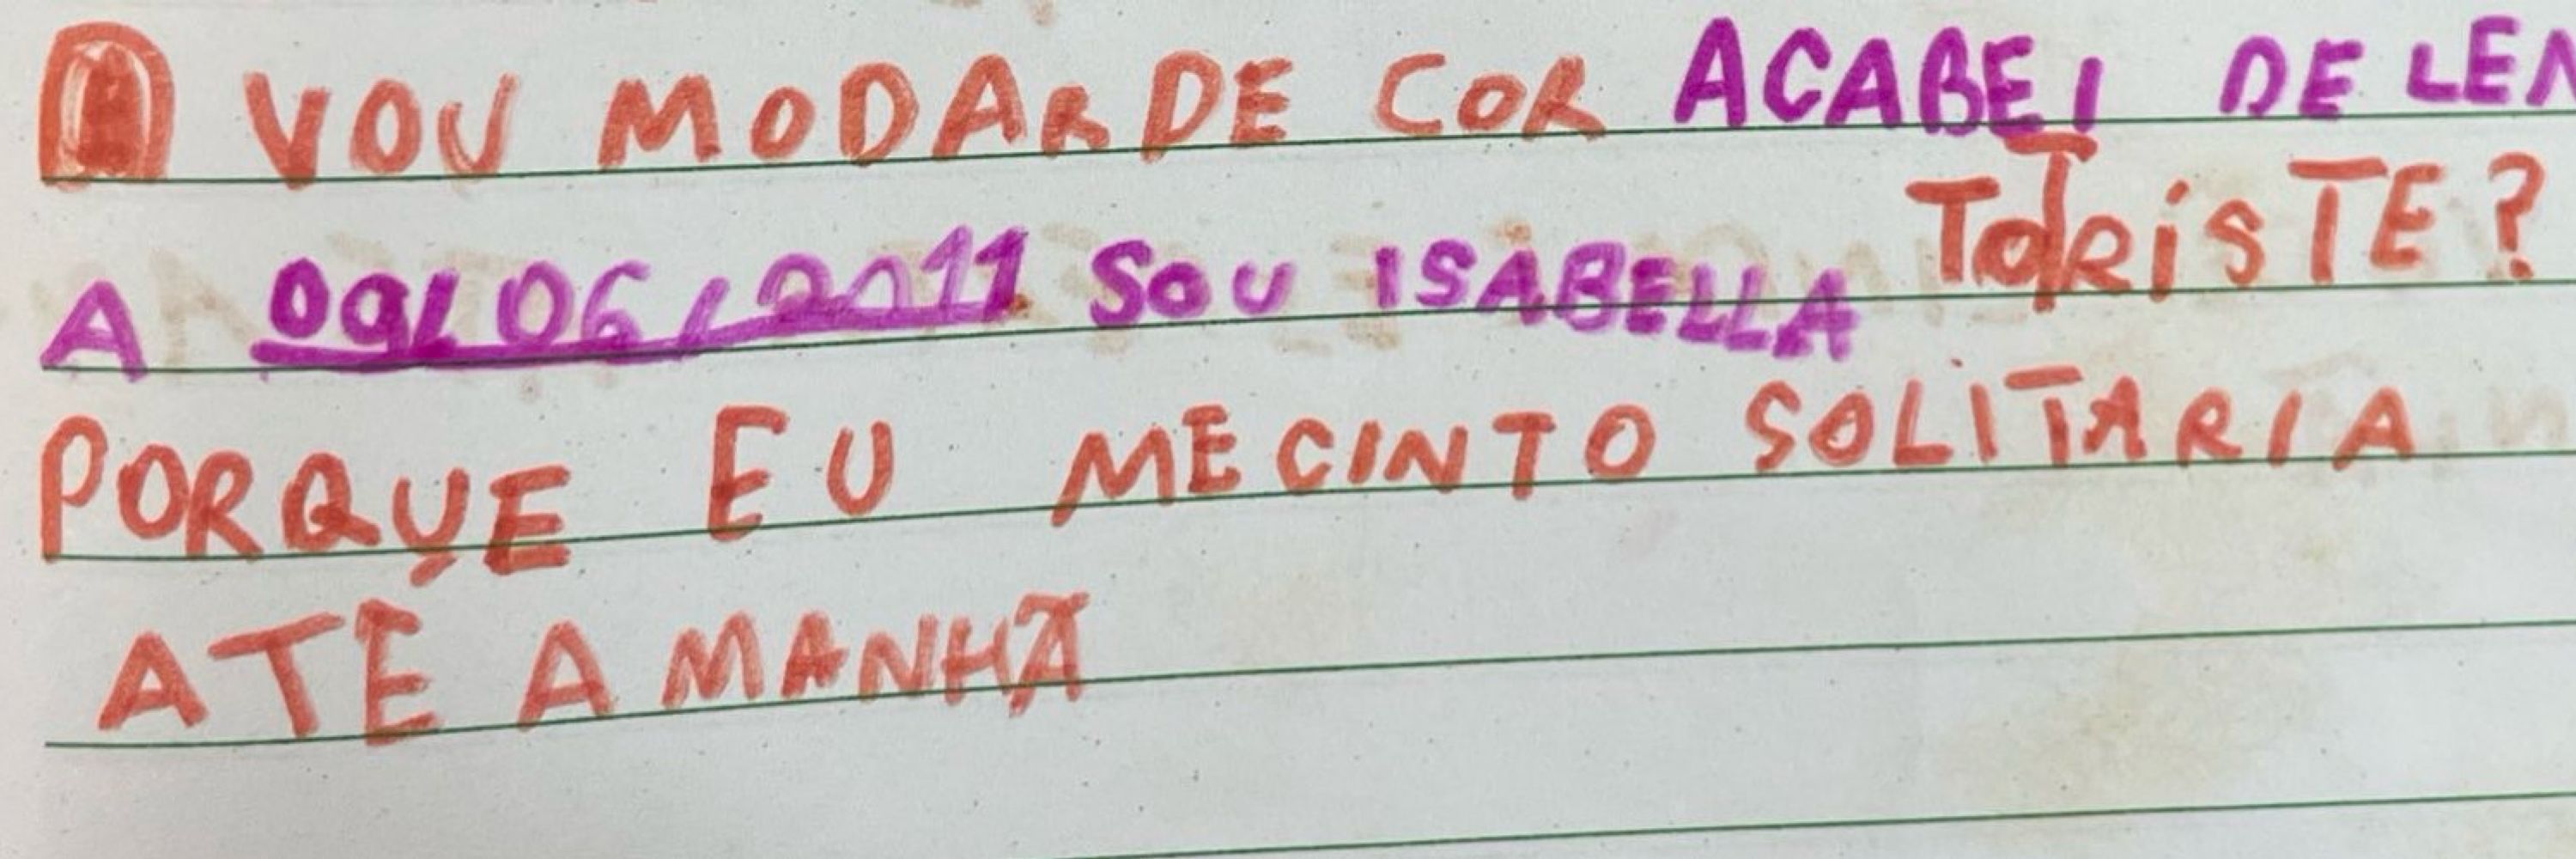 A VOU MODAR DE COR ACABEI DE LEN
A 09/06/2011 SOU ISABELLA TO TRISTE?
PORQUE EU ME CINTO SOLITARIA
ATÉ AMANHÃ